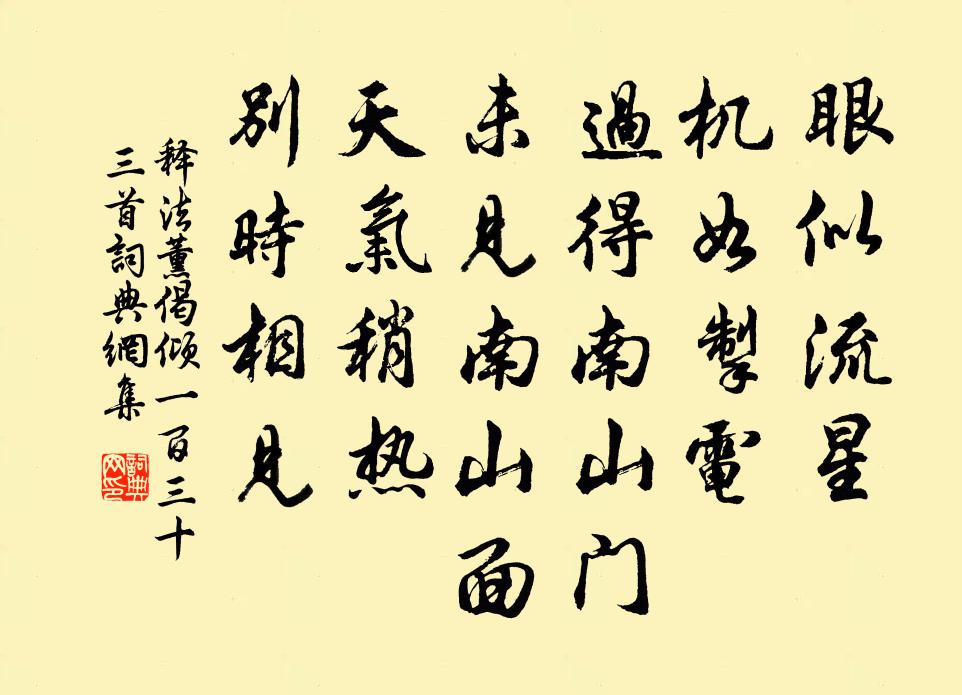 眼似流星
机如掣電
過得南山门
未見南山面
天氣稍热
別時相見
释法薰偈倾一百三十
三首詞典網集
詞典
网印